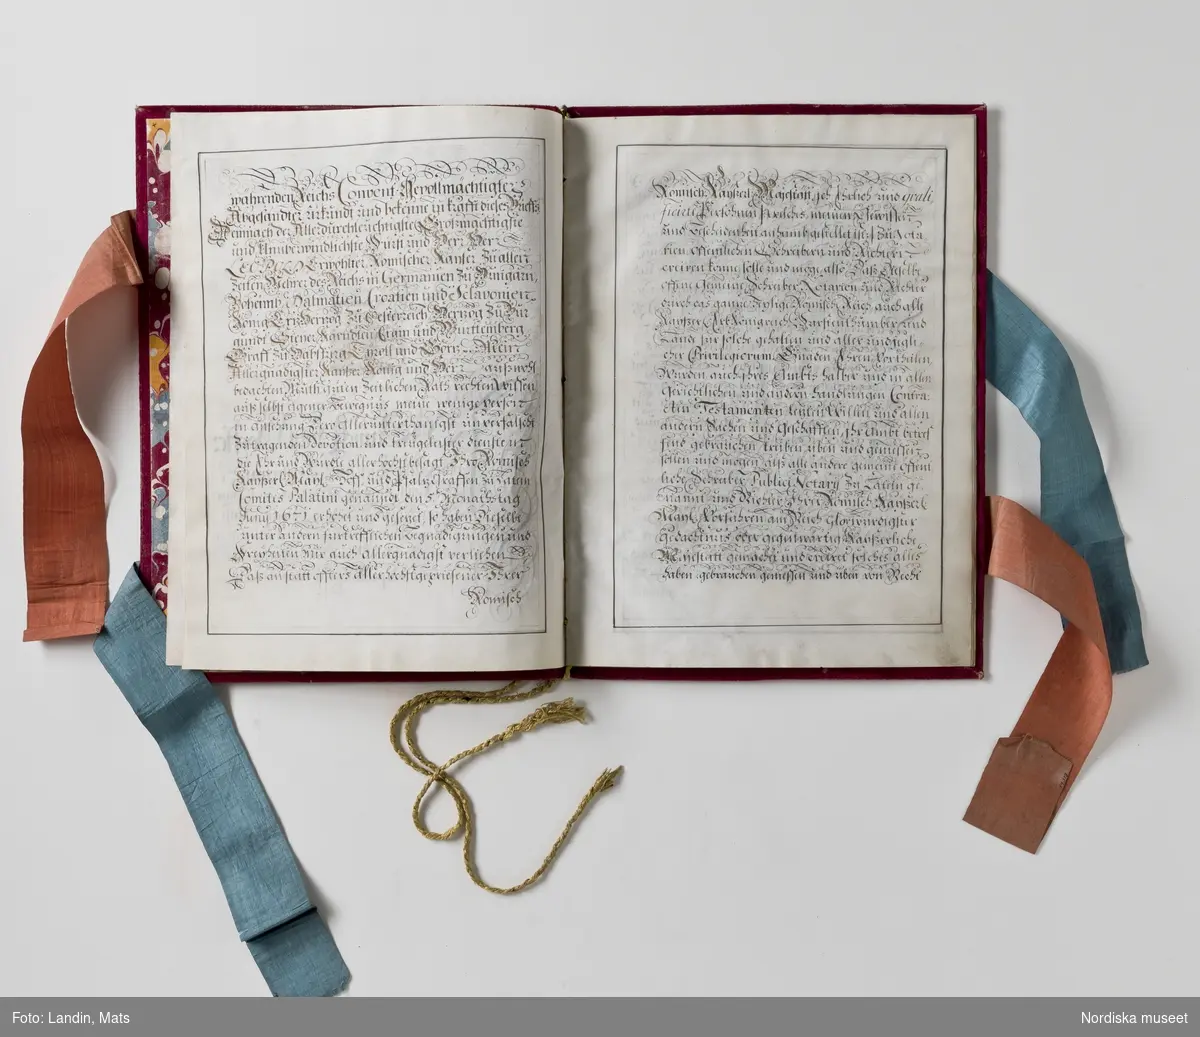 währenden Reichs Convent Bevollmächtigter
Abgesandter Urkündt und bekenne in krafft dieses Brieffs
Demnach der Allerdurchleuchtigste Großmächtigste
und Unüberwindlichste Fürst und Herr Herr
Erwöhlter Römischer Kayser Zu allen
Zeiten Mehrer des Reichs in Germanien Zu Hungarn
Böheimb Dalmatien Croatien und Sclavonien
König Ertz Herzog Zu Oesterreich Herzog Zu Bur
gundt Steyer Kärndten Crain und Württemberg
Graff Zu Habspurg Tyroll und Görtz Mein
Allergnädigster Kayser König und Herr auß wohl
bedachten Muth guten Zeitlichen Rath rechten Wissen
auß selbst eigener Bewegnüs meine wenige Person
in ansehung Dero Allerunterthänigst unverfälscht
Zutragenden Devotion und treugeleister diensten
die Ehr und Würde allerhöchst besagt Ihro Römisch
Kayserl. Mayt. Hoff und Pfaltz Graffen Zu Latein
Comites Palatini genandt den 5. Monaths tag
Juny 1671 erhebet und gesezet, so haben Dieselbe
unter andern fürtrefflichen Begnadigungen und
Freyheiten Mir auch allergnädigst verliehen
Daß an statt öffters Aller höchstgepriesener Ihrer
Römisch
Römisch. Kayserl. Mayestät Ich Ehrliche und quali
ficirte Persohnen
und Beschiedenheit
öffentlichen Schreibern und Richtern
creiren kann, solle und möge, also Daß dieselbe
offene Gemeine Schreiber Notarien und Richter
durch das gantze Heylig Römisch Reich auch alle
Kayser Erb Königreich Fürstenthümber und
Lande für solche gehalten und aller und jegli
cher Privilegierum Gnaden Ehren Vortheilen
Würden auch ihres Ambts halber und in allen
Gerichtlichen und andern Handlungen Contra
cten Testamenten letzten Willen und allen
andern Sachen und Geschäfften, Ihr Ambt betref
fend gebrauchen treiben üben und geniessen
sollen und mögen auß alle andere gemeine offent
liche Schreiber Publici Notarij Zu Latein ge
nannt und Richter Ihrer Römisch. Kayserl.
Mayt. Vorfahren am Reich Glorwürdigster
Gedächtnüs oder gegenwärtig Kayßerliche
Mayestätt gemacht und creiret solches alles
haben gebrauchen geniessen und üben von Recht
Foto: Landin, Mats
Nordiska museet